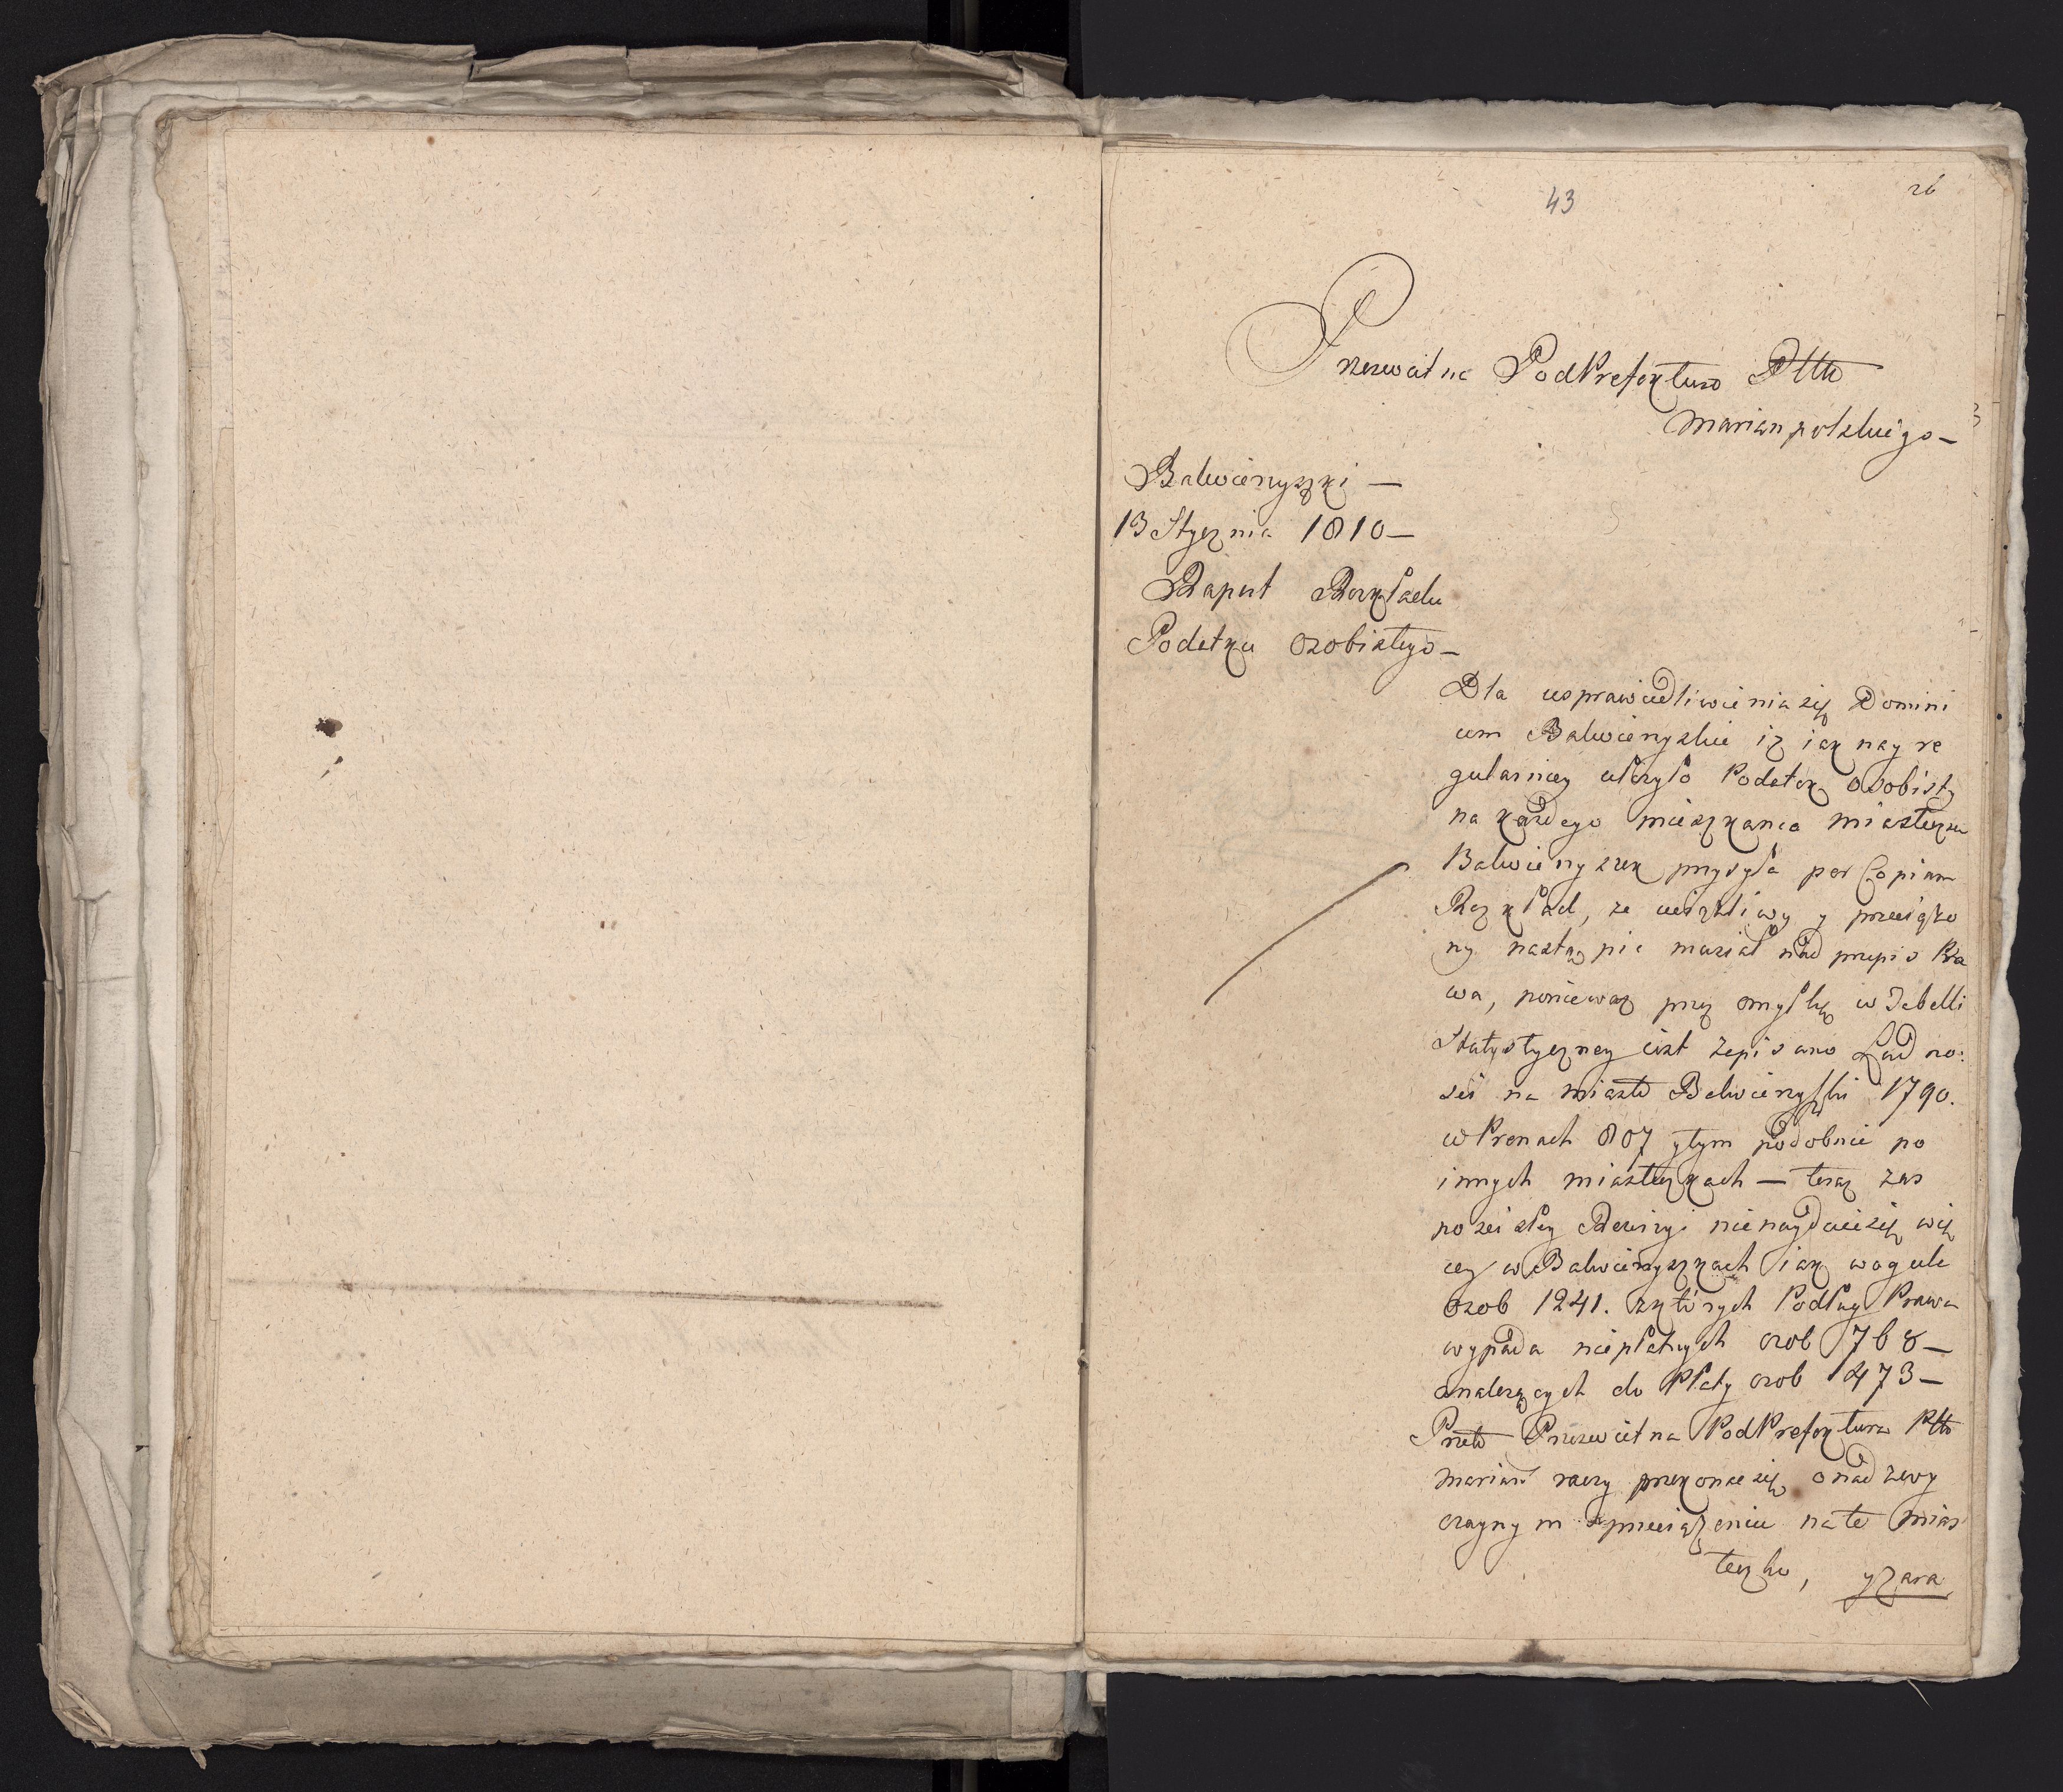 43
26
Przeswietna PodPrefektura Pttu
Marianpolskiego—
Balwierzyszki —
13 Stycznia 1810—
Raport Rozkładu
Podatku Osobistego—
Dla usprawiedliwienia się Domini
um Balwierzyskie iz iak nay re
gularniey ułożyło Podatek osobisty
na każdego mieszkanca miasteczka
Balwierzyszek przysyła per Copiam
Rozkład, ze uciążliwy y przeciążo
ny nastąpic musiał nad przepis Pra
wa, ponieważ przez omyłkę w Tabelli
Statystyczney iest zapisano Ludno:
sci na miasto Balwierzyszki 1790.
w Prenach 807 y tym podobnie po
innych miasteczkach — teraz zas
po scisłey Rewizyi nienayduie się wię
cey w Balwierzyszkach iak wogule
osob 1241. z których Podług Prawa
wypada niepłatnych osob 768—
należących do Płaty osob 473—
Przeto Przeswietna PodPrefektura Pttu
Marian raczy przekonac się o nadzwy
czaynym przeciążeniu na te mias
teczko, y zara